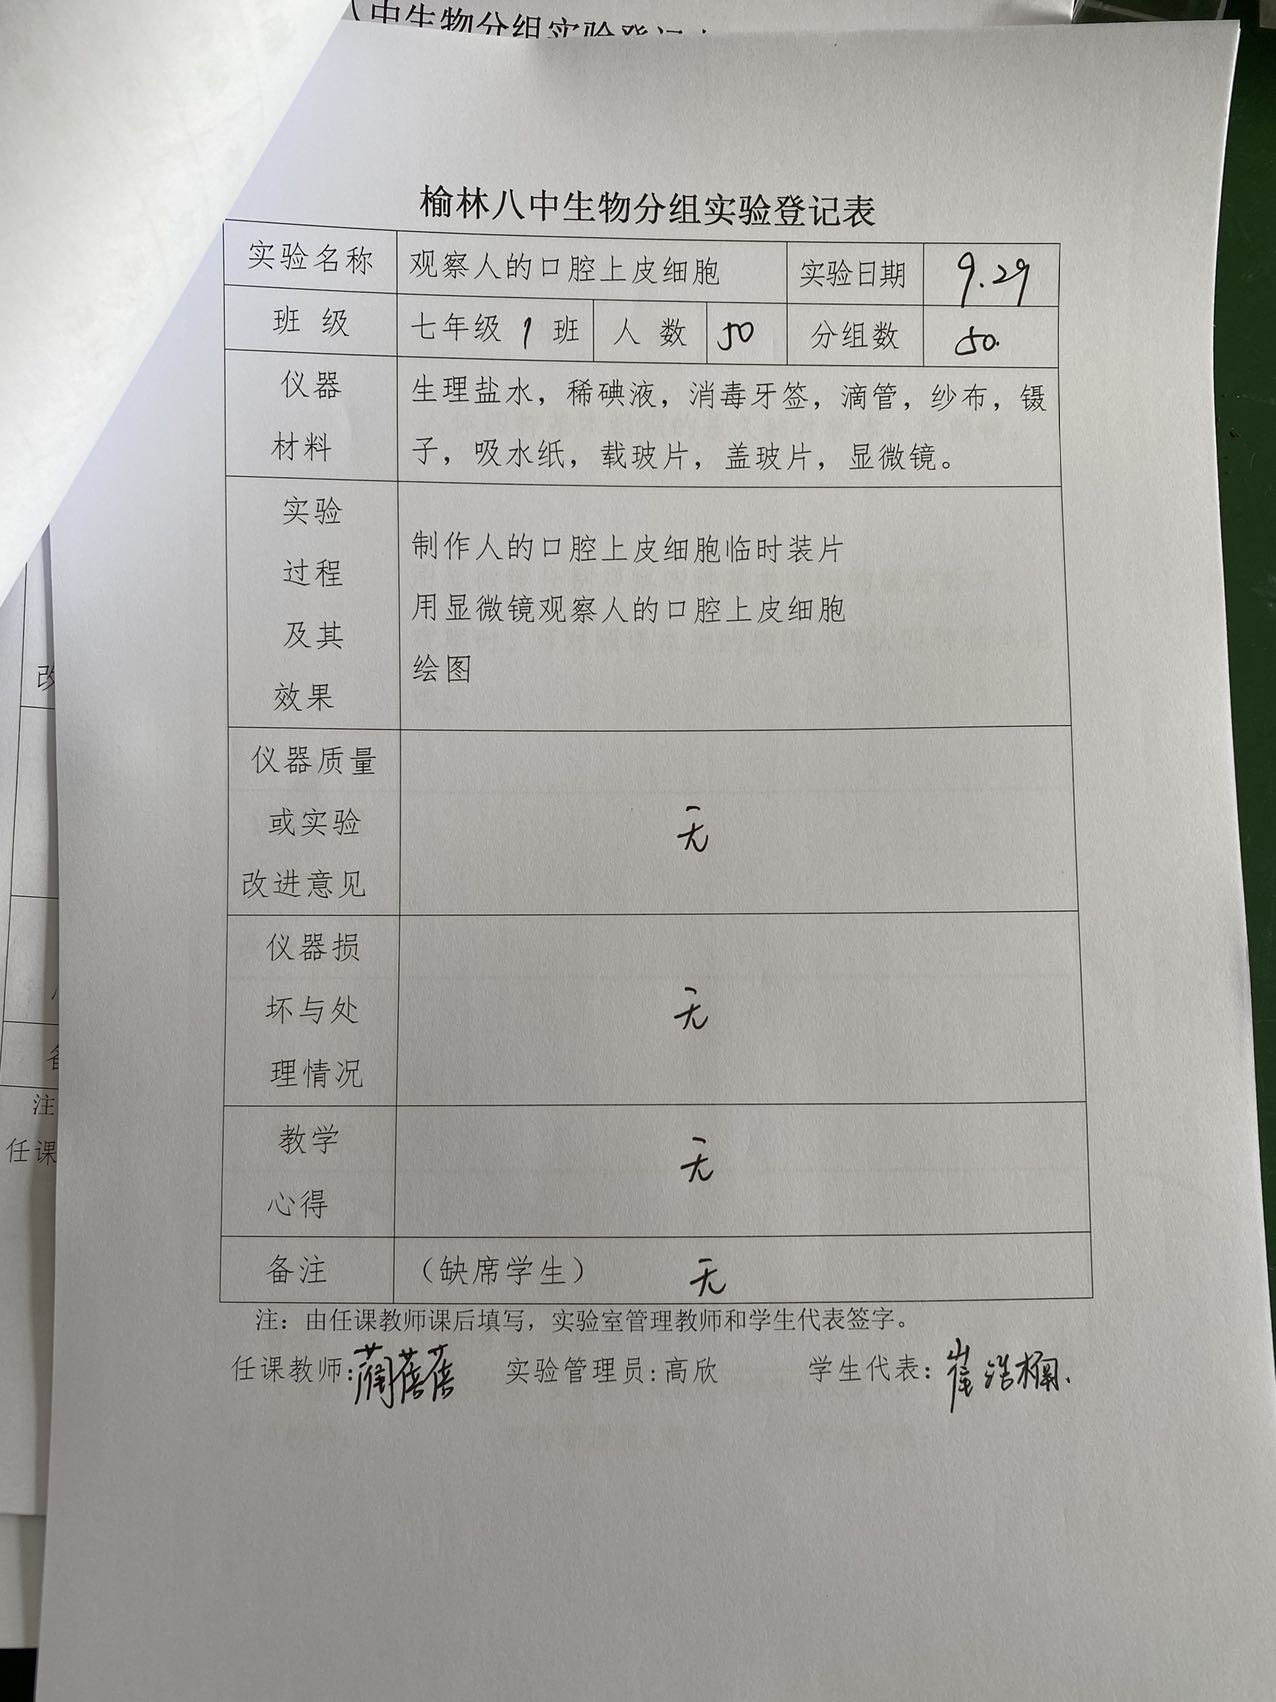 八中生物分组实验登记表
榆林八中生物分组实验登记表
实验名称 观察人的口腔上皮细胞 实验日期 9.29
班 级 七年级 1 班 人 数 50 分组数 50.
仪器 生理盐水，稀碘液，消毒牙签，滴管，纱布，镊
材料 子，吸水纸，载玻片，盖玻片，显微镜。
实验
过程 制作人的口腔上皮细胞临时装片
及其 用显微镜观察人的口腔上皮细胞
效果 绘图
仪器质量
或实验 无
改进意见
仪器损
坏与处 无
理情况
教学 无
心得
备注 （缺席学生） 无
注：由任课教师课后填写，实验室管理教师和学生代表签字。
任课教师： 蓓蓓 实验管理员：高欣 学生代表：崔浩
改
注
任课